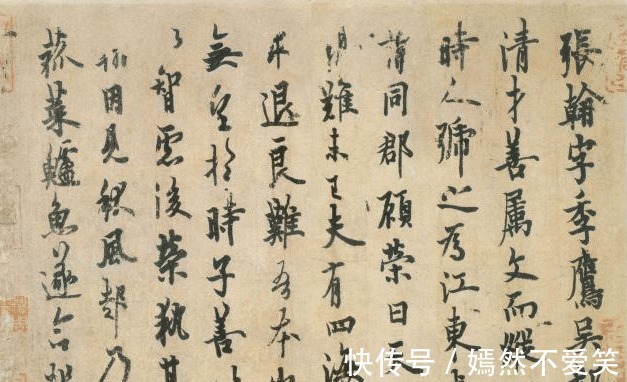 張翰字季鷹吳
清才善屬文而縱
時人號之為江東
謂同郡顧榮曰天
難未已夫有四海
求退良難吾本山
無望於時子善
智慮後榮執其
翰因見秋風起乃
菰菜鱸魚遂命駕
快传号 / 嫣然不爱笑